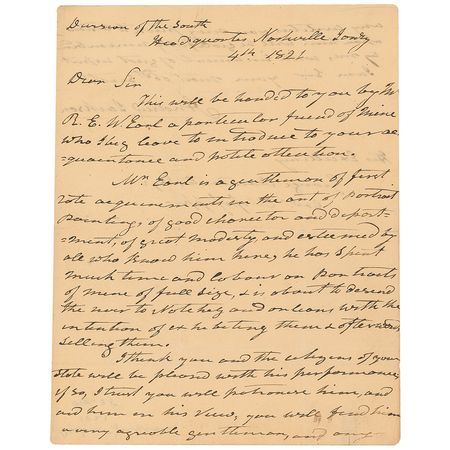 Division of the South
Head quarters Nashville Janry
4th 1821
Dear Sir
This will be handed to you by Mr
R. E. W. Earl a particular friend of mine
who I beg leave to introduce to your ac-
=quaintance and polite attention.
Mr. Earl is a gentleman of first
rate acquirements in the art of Portrait
Painting, of good charector and deport-
=ment, of great modesty and esteemed by
all who know him here, he has spent
much time and labour on Portraits
of mine of full size, & is about to descend
the river to Natchez and orleans with the
intention of exhebiting them & afterwards
selling them.
I think you and the citizens of your
state will be pleased with his performance,
if so, I trust you will patronise him, and
aid him in his view, you will find him
a very agreable gentleman, and any